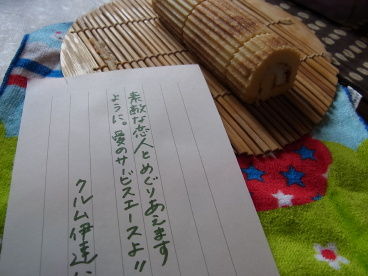 素敵な恋人とめぐりあえます
ように。愛のサービスエースよ!!
クルム伊達